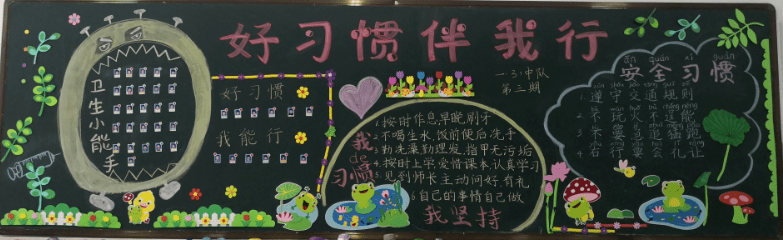 好习惯伴我行
一.3.中队
第三期
卫生小能手
好习惯
我能行
我de习惯
1.按时作息,早晚刷牙
2.不喝生水,饭前便后洗手
3.勤洗澡勤理发,指甲无污垢
4.按时上学爱惜课本认真学习
5.见到师长主动问好有礼
6自己的事情自己做
我坚持
ān quán xí guàn
安全习惯
1.遵守交通规则
2.不
3.不
4.右行要会礼让